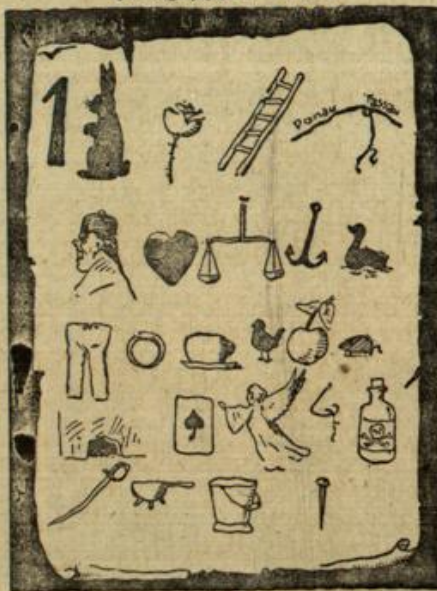 1
Donau Passau